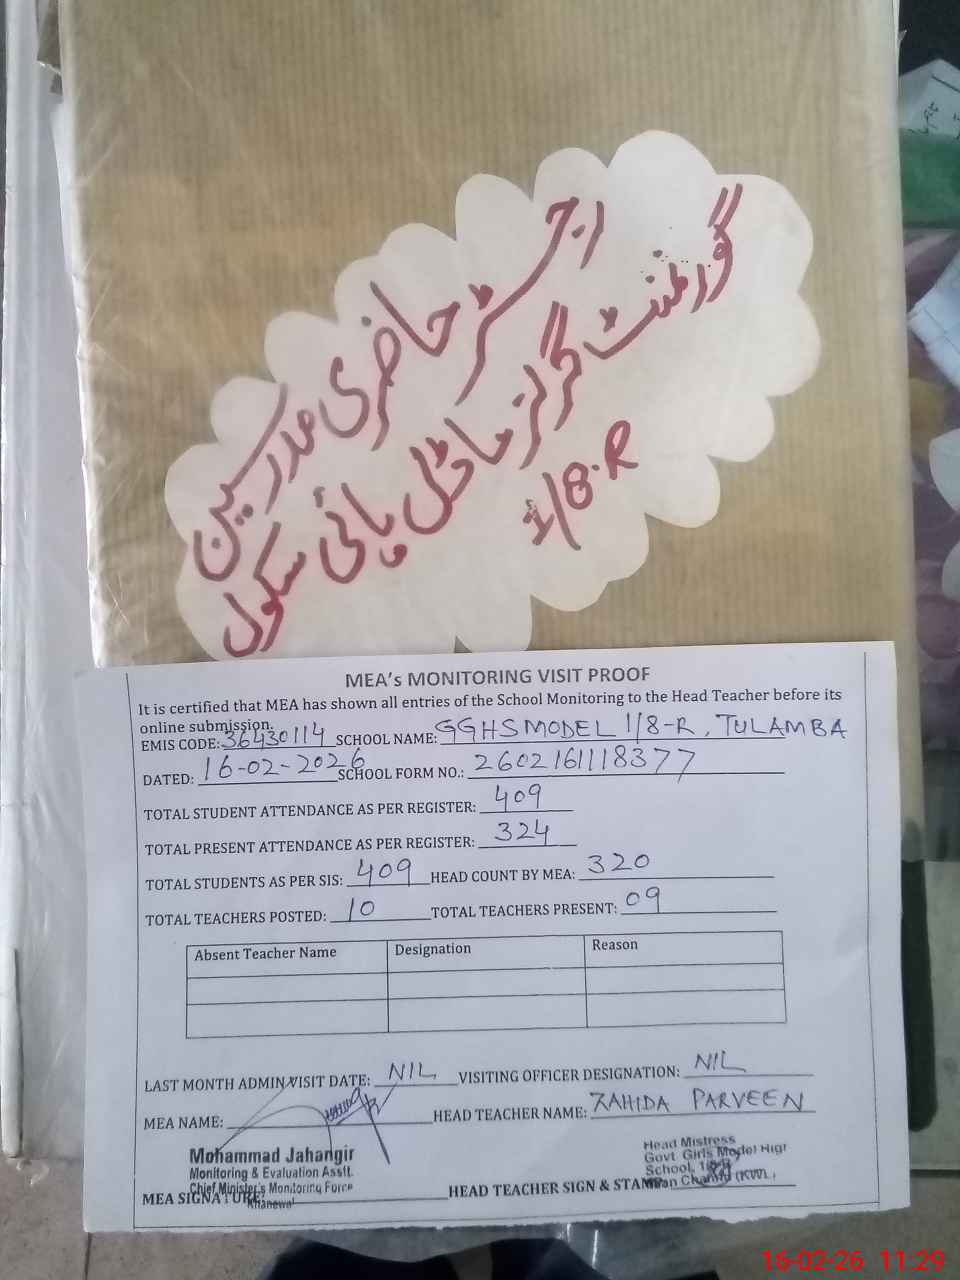 رجسٹر حاضری مدرسین
گورنمنٹ گرلز ماڈل ہائی سکول
1/8-R
MEA's MONITORING VISIT PROOF
It is certified that MEA has shown all entries of the School Monitoring to the Head Teacher before its
online submission.
EMIS CODE: 36430114 SCHOOL NAME: GGHS MODEL 1/8-R, TULAMBA
DATED: 16-02-2026 SCHOOL FORM NO.: 2602161118377
TOTAL STUDENT ATTENDANCE AS PER REGISTER: 409
TOTAL PRESENT ATTENDANCE AS PER REGISTER: 324
TOTAL STUDENTS AS PER SIS: 409 HEAD COUNT BY MEA: 320
TOTAL TEACHERS POSTED: 10 TOTAL TEACHERS PRESENT: 09
Absent Teacher Name Designation Reason
LAST MONTH ADMIN VISIT DATE: NIL VISITING OFFICER DESIGNATION: NIL
MEA NAME: HEAD TEACHER NAME: ZAHIDA PARVEEN
Mohammad Jahangir
Monitoring & Evaluation Asstt.
Chief Minister's Monitoring Force
Khanewal
MEA SIGNATURE:
Head Mistress
Govt. Girls Model High
School, 1/8-R
Mian Channu (KWL)
HEAD TEACHER SIGN & STAMP
16-02-26 11:29